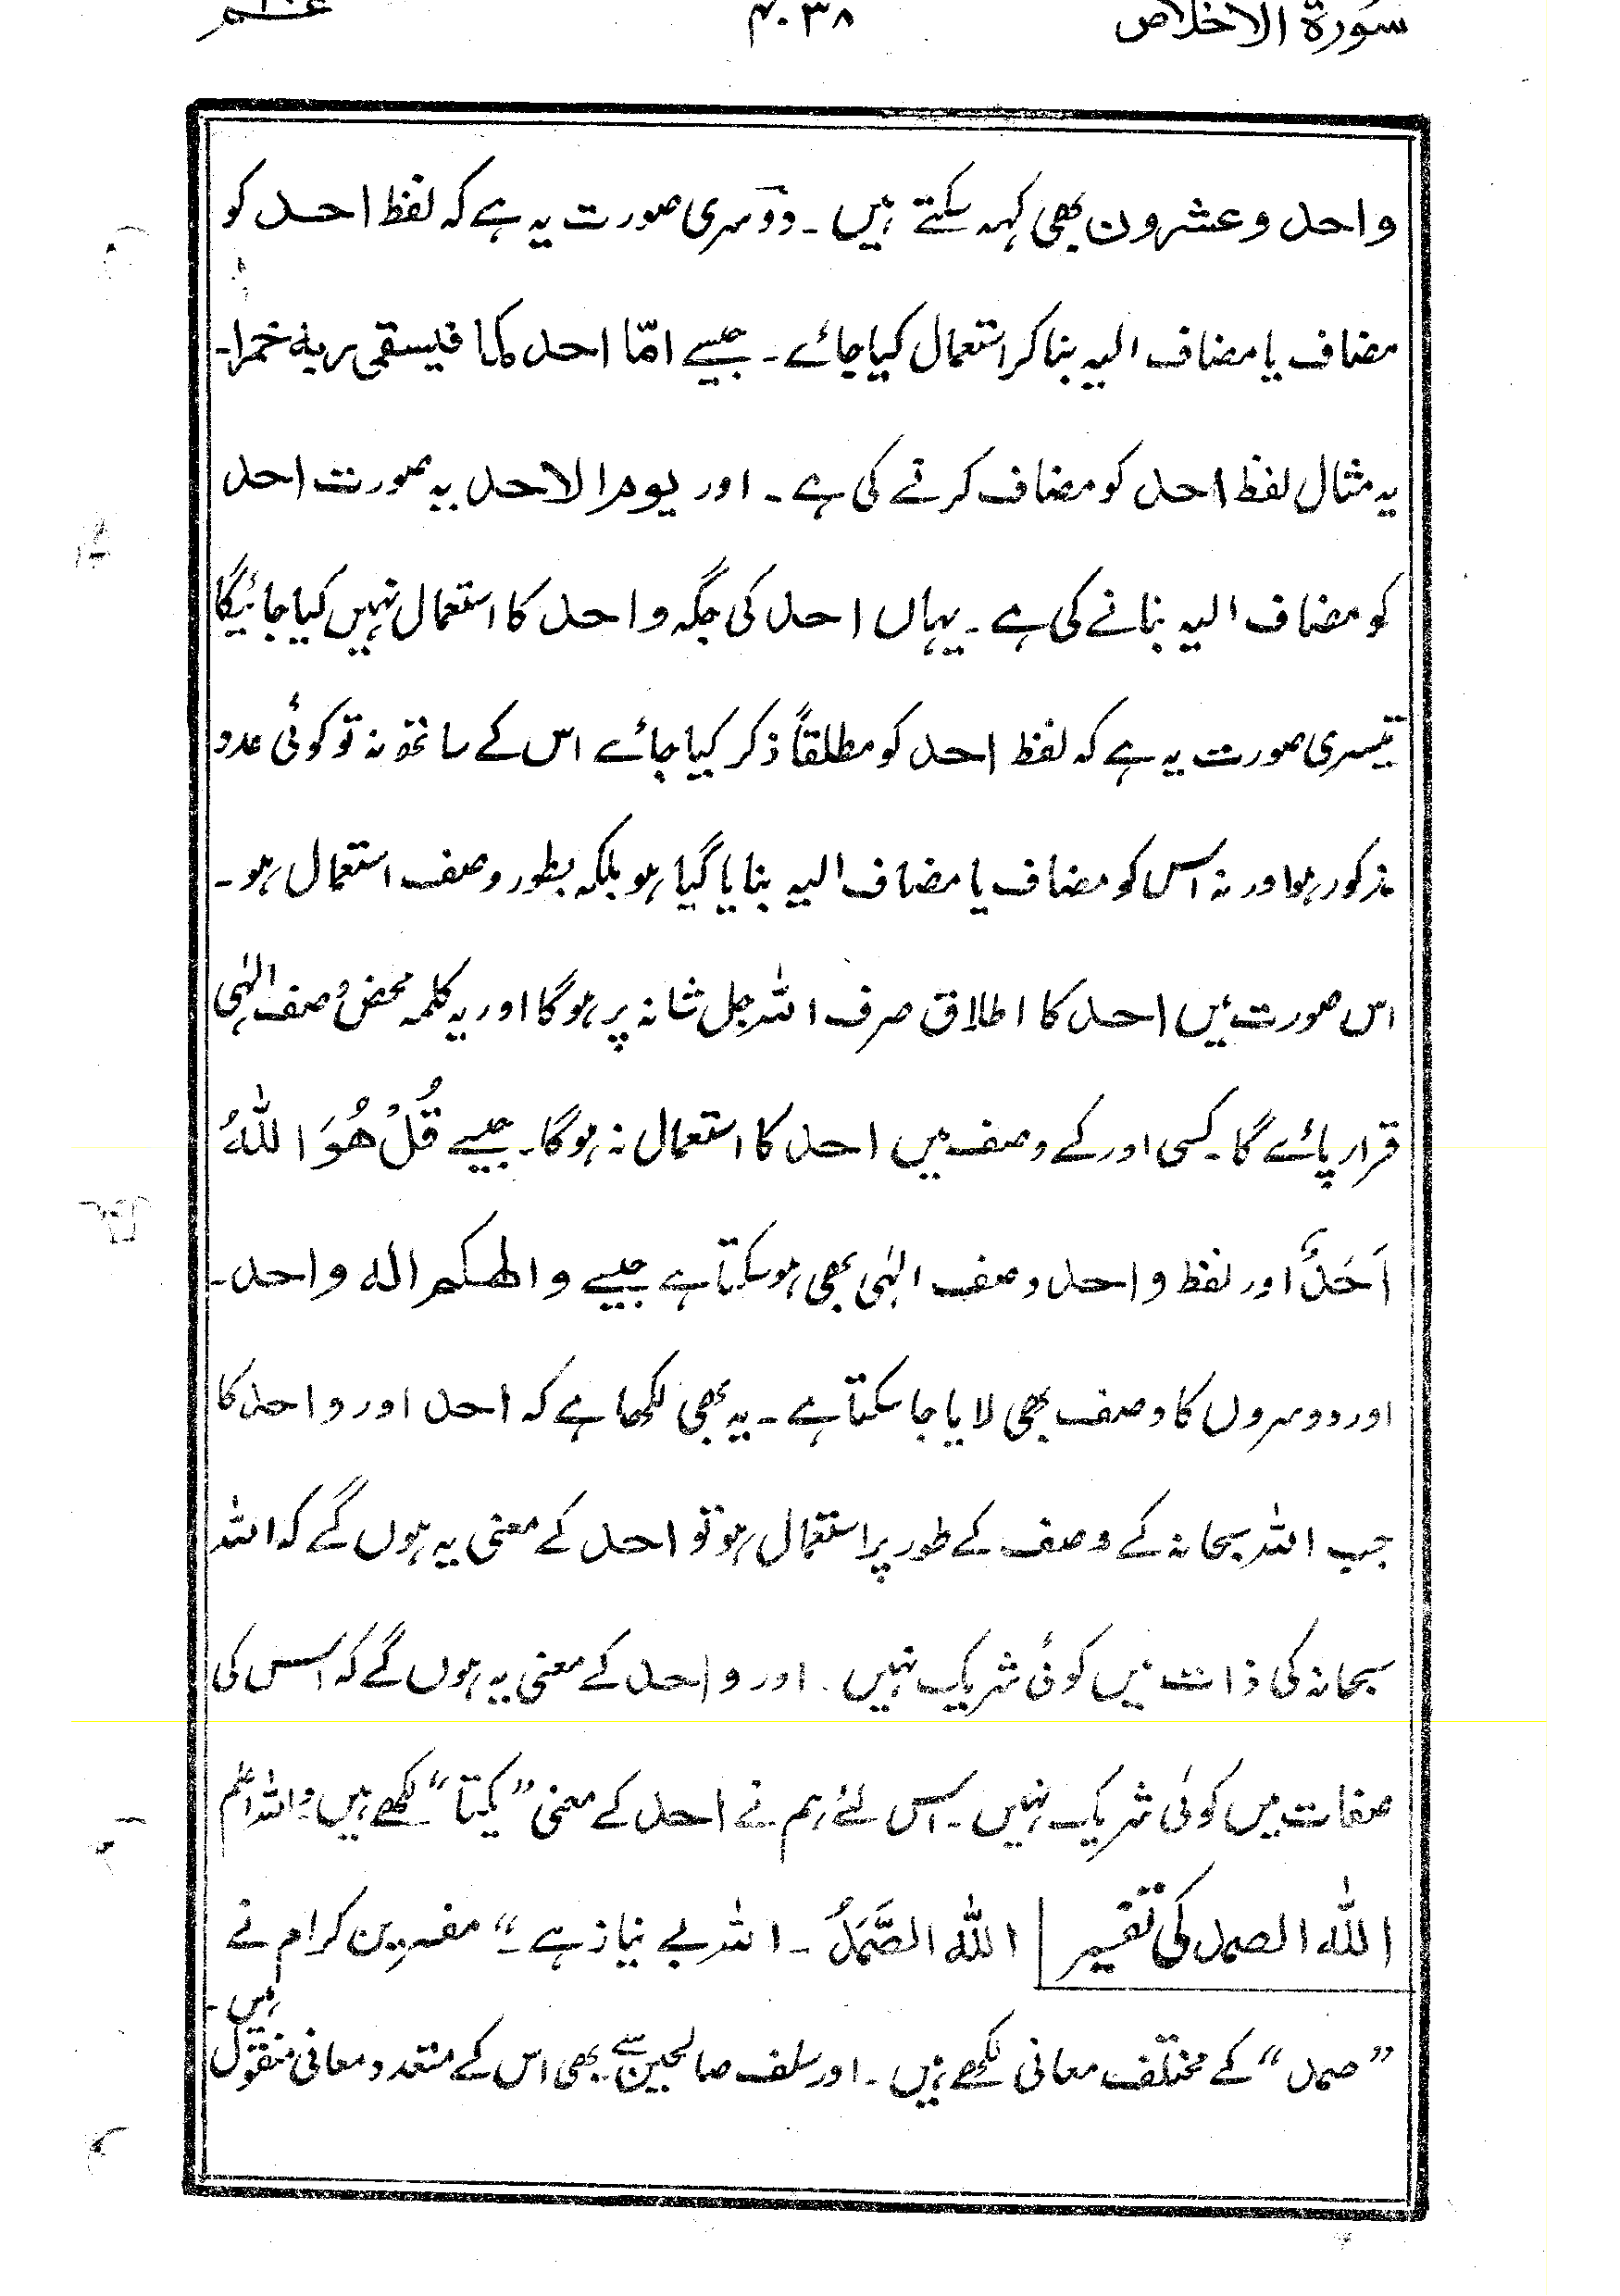 سورة الاخلاص ۴۰۳۸
واحد وعشرون بھی کہہ سکتے ہیں ۔ دوسری صورت یہ ہے کہ لفظ احد کو
مضاف یا مضاف الیہ بنا کر استعمال کیا جائے ۔ جیسے امّا احدکما فیسقی ربہ خمرا۔
یہ مثال لفظ احد کو مضاف کرنے کی ہے ۔ اور یوم الاحد یہ صورت احد
کو مضاف الیہ بنانے کی ہے ۔ یہاں احد کی جگہ واحد کا استعمال نہیں کیا جائیگا
تیسری صورت یہ ہے کہ لفظ احد کو مطلقاً ذکر کیا جائے اس کے ساتھ نہ تو کوئی عدد
مذکور ہو اور نہ اس کو مضاف یا مضاف الیہ بنایا گیا ہو بلکہ بطور وصف استعمال ہو ۔
اس صورت میں احد کا اطلاق صرف اللہ جل شانہ پر ہوگا اور یہ کلمہ محض وصف الٰہی
قرار پائے گا ۔ کسی اور کے وصف میں احد کا استعمال نہ ہوگا ۔ جیسے قُلْ هُوَ اللّٰهُ
اَحَدٌ اور لفظ واحد وصف الٰہی بھی ہو سکتا ہے جیسے والھکم الہ واحد ۔
اور دوسروں کا وصف بھی لایا جا سکتا ہے ۔ یہ بھی لکھا ہے کہ احد اور واحد کا
جب اللہ سبحانہ کے وصف کے طور پر استعمال ہو تو احد کے معنی یہ ہوں گے کہ اللہ
سبحانہ کی ذات میں کوئی شریک نہیں ۔ اور واحد کے معنی یہ ہوں گے کہ اس کی
صفات میں کوئی شریک نہیں ۔ اس لئے ہم نے احد کے معنی ”یکتا“ لکھے ہیں واللہ اعلم
اللہ الصمد کی تفسیر اللہ الصَّمَدُ ۔ اللہ بے نیاز ہے ۔“ مفسرین کرام نے
”صمد“ کے مختلف معانی لکھے ہیں ۔ اور سلف صالحین سے بھی اس کے متعدد معانی منقول ہیں ۔